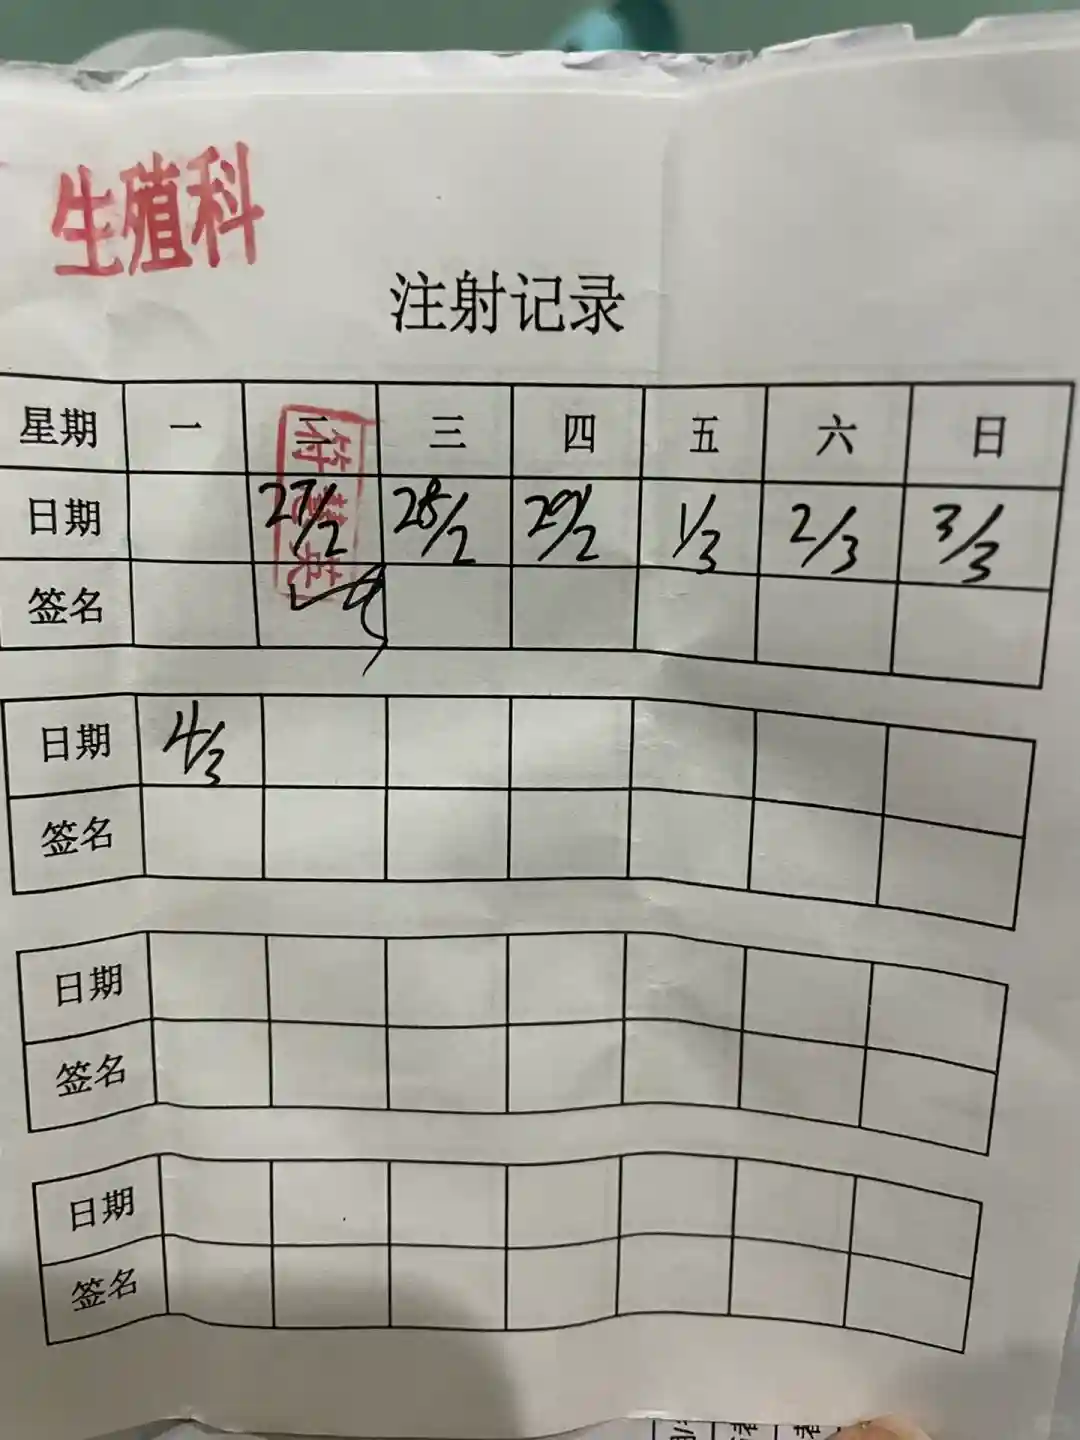 生殖科
注射记录
星期 一 二 三 四 五 六 日
符慧英
日期 27/2 28/2 29/2 1/3 2/3 3/3
签名
日期 4/3
签名
日期
签名
日期
签名